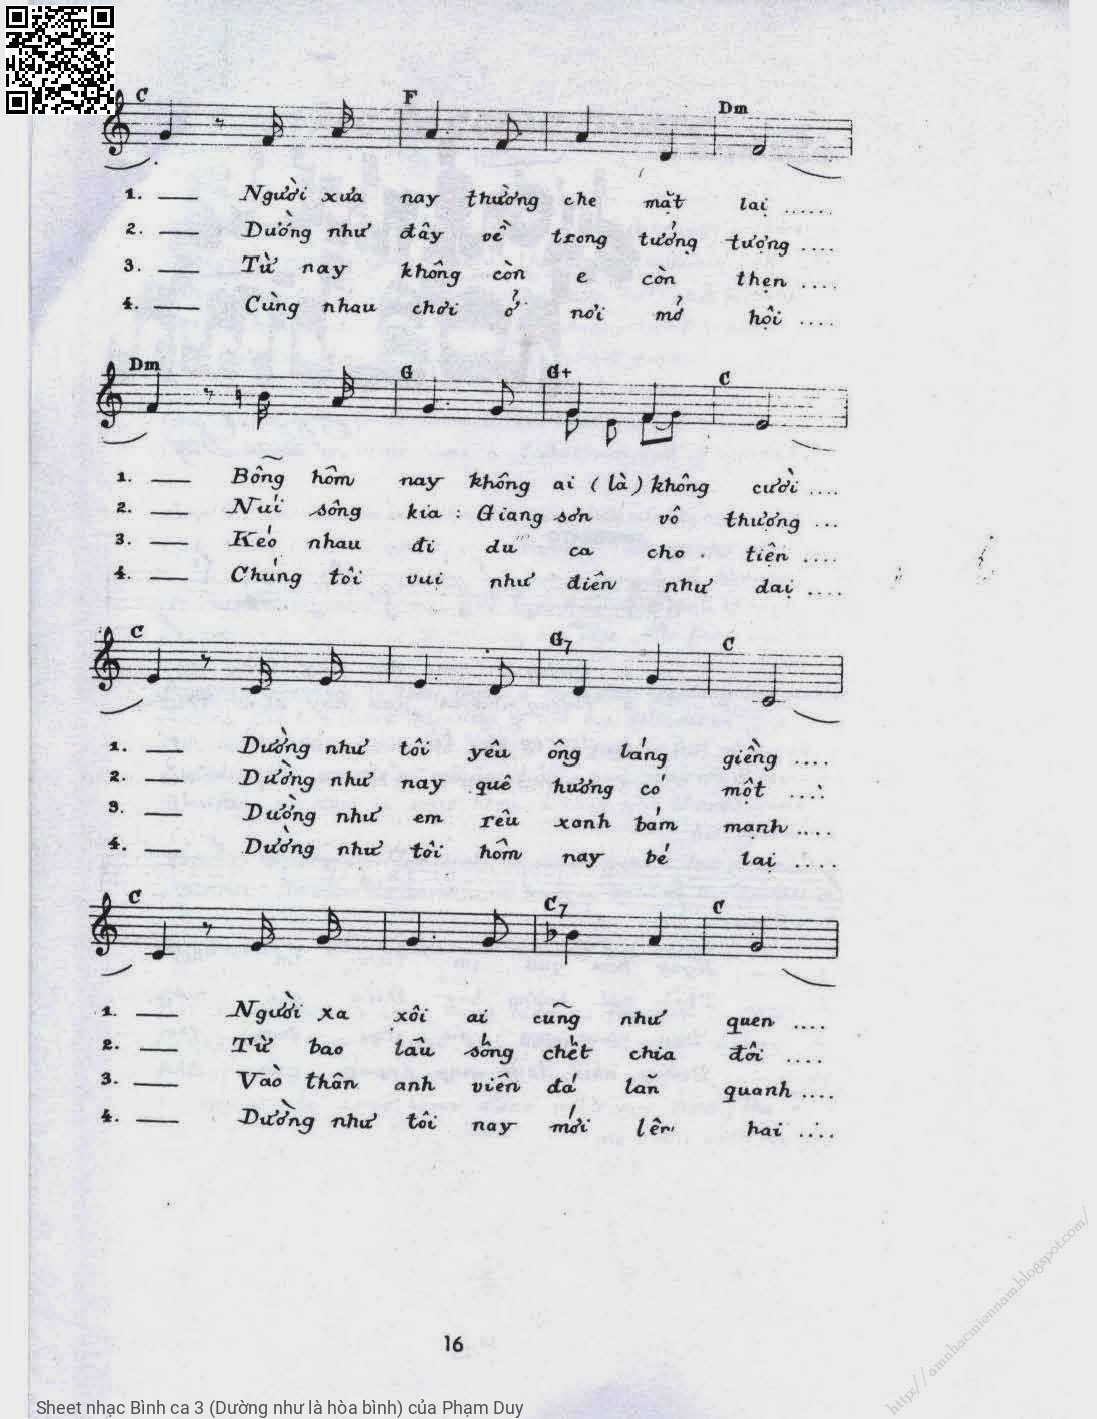 C F Dm
1. — Người xưa nay thường che mặt lại ......
2. — Dường như đây về trong tưởng tượng ....
3. — Từ nay không còn e còn thẹn ....
4. — Cùng nhau chơi ở nơi mở hội ....
Dm G G+ C
1. — Bỗng hôm nay không ai (là) không cười ....
2. — Núi sông kia : Giang sơn vô thượng ...
3. — Kéo nhau đi du ca cho tiện ....
4. — Chúng tôi vui như điên như dại ....
C G7 C
1. — Dường như tôi yêu ông láng giềng ....
2. — Dường như nay quê hương có một ....
3. — Dường như em rêu xanh bám mạnh ....
4. — Dường như tôi hôm nay bé lại ....
C C7 C
1. — Người xa xôi ai cũng như quen ....
2. — Từ bao lâu sống chết chia đôi ....
3. — Vào thân anh viên đá lăn quanh ....
4. — Dường như tôi nay mới lên hai ....
16
http://amnhacmiennam.blogspot.com/
Sheet nhạc Bình ca 3 (Dường như là hòa bình) của Phạm Duy